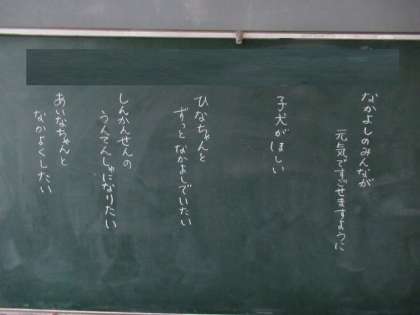 なかよしのみんなが
元気ですごせますように
子犬がほしい
ひなちゃんと
ずっとなかよしでいたい
しんかんせんの
うんてんしゅになりたい
あいなちゃんと
なかよくしたい